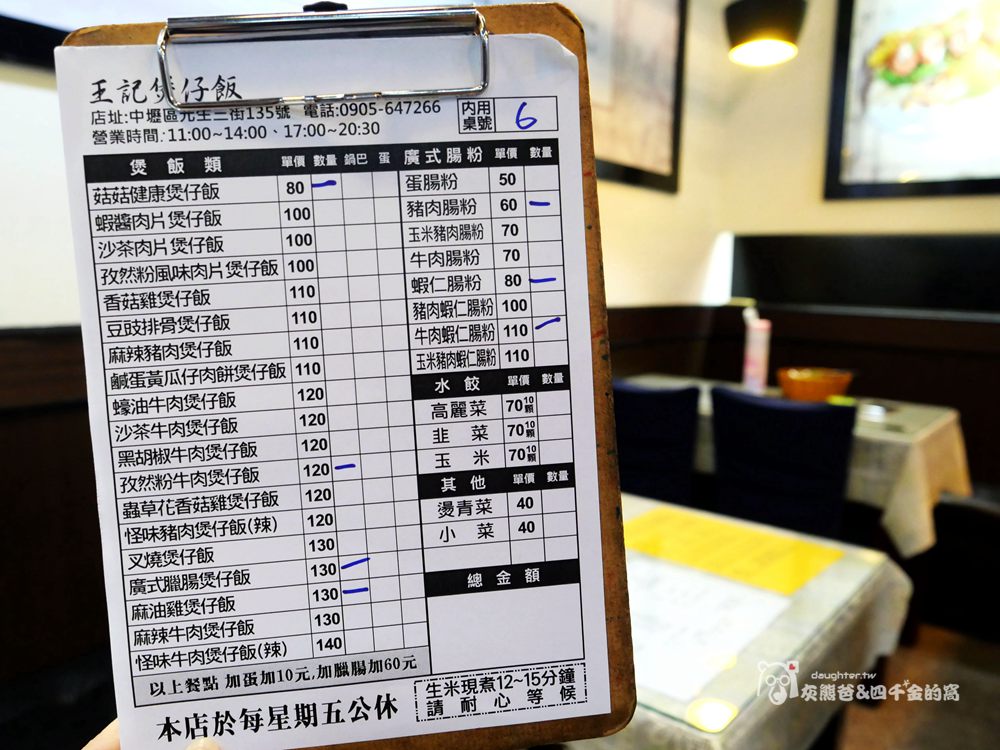 王記煲仔飯
店址:中壢區元生三街135號 電話:0905-647266
營業時間:11:00~14:00、17:00~20:30
內用桌號 6
煲飯類 單價 數量 鍋巴 蛋
菇菇健康煲仔飯 80
蝦醬肉片煲仔飯 100
沙茶肉片煲仔飯 100
孜然粉風味肉片煲仔飯 100
香菇雞煲仔飯 110
豆豉排骨煲仔飯 110
麻辣豬肉煲仔飯 110
鹹蛋黃瓜仔肉餅煲仔飯 110
蠔油牛肉煲仔飯 120
沙茶牛肉煲仔飯 120
黑胡椒牛肉煲仔飯 120
孜然粉牛肉煲仔飯 120
蟲草花香菇雞煲仔飯 120
怪味豬肉煲仔飯(辣) 120
叉燒煲仔飯 130
廣式臘腸煲仔飯 130
麻油雞煲仔飯 130
麻辣牛肉煲仔飯 130
怪味牛肉煲仔飯(辣) 140
以上餐點 加蛋加10元,加臘腸加60元
廣式腸粉 單價 數量
蛋腸粉 50
豬肉腸粉 60
玉米豬肉腸粉 70
牛肉腸粉 70
蝦仁腸粉 80
豬肉蝦仁腸粉 100
牛肉蝦仁腸粉 110
玉米豬肉蝦仁腸粉 110
水餃 單價 數量
高麗菜 70 10顆
韭菜 70 10顆
玉米 70 10顆
其他 單價 數量
燙青菜 40
小菜 40
總金額
生米現煮12~15分鐘
請耐心等候
本店於每星期五公休
daughter.tw
灰熊爸&四千金的窩